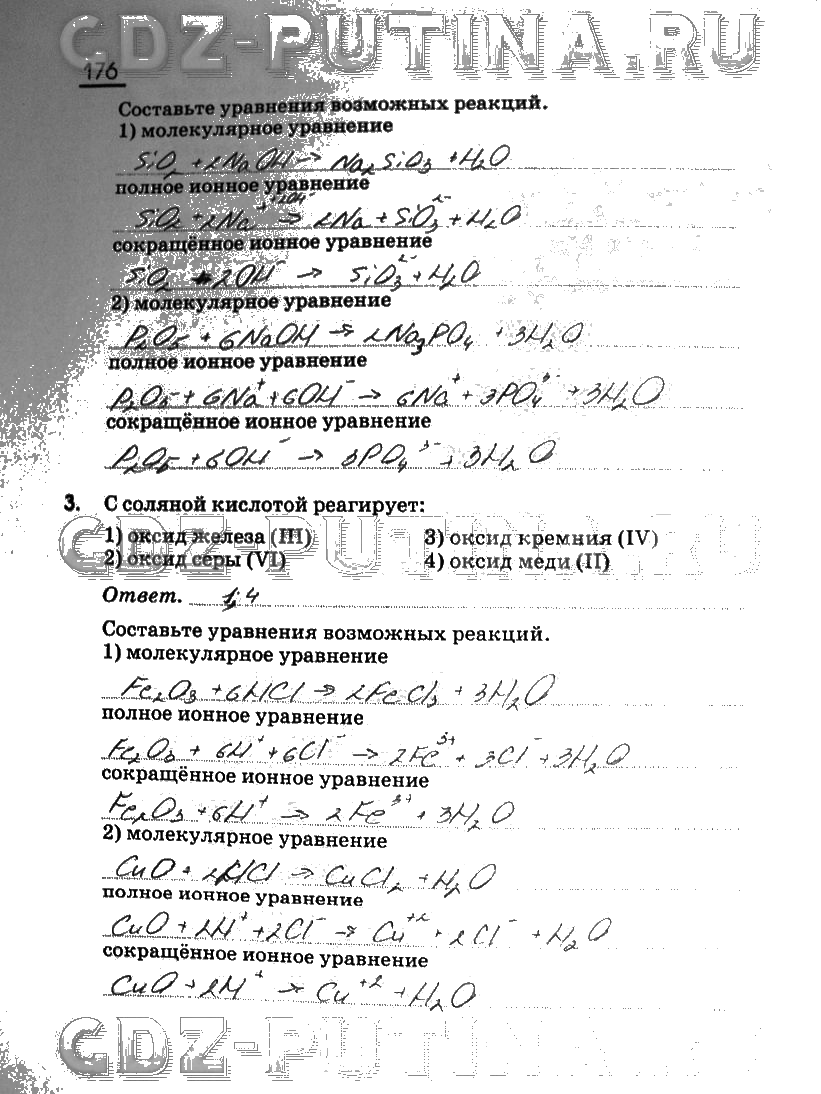 GDZ-PUTINA.RU
176
Составьте уравнения возможных реакций.
1) молекулярное уравнение
SiO₂ + 2NaOH → Na₂SiO₃ + H₂O
полное ионное уравнение
SiO₂ + 2Na⁺ + 2OH⁻ → 2Na + SiO₃²⁻ + H₂O
сокращённое ионное уравнение
SiO₂ + 2OH⁻ → SiO₃²⁻ + H₂O
2) молекулярное уравнение
P₂O₅ + 6NaOH → 2Na₃PO₄ + 3H₂O
полное ионное уравнение
P₂O₅ + 6Na⁺ + 6OH⁻ → 6Na⁺ + 3PO₄³⁻ + 3H₂O
сокращённое ионное уравнение
P₂O₅ + 6OH⁻ → 3PO₄³⁻ + 3H₂O
3. С соляной кислотой реагирует:
GDZ-PUTINA.RU
1) оксид железа (III) 3) оксид кремния (IV)
2) оксид серы (VI) 4) оксид меди (II)
Ответ. 1,4
Составьте уравнения возможных реакций.
1) молекулярное уравнение
Fe₂O₃ + 6HCl → 2FeCl₃ + 3H₂O
полное ионное уравнение
Fe₂O₃ + 6H⁺ + 6Cl⁻ → 2Fe³⁺ + 3Cl⁻ + 3H₂O
сокращённое ионное уравнение
Fe₂O₃ + 6H⁺ → 2Fe³⁺ + 3H₂O
2) молекулярное уравнение
CuO + 2HCl → CuCl₂ + H₂O
полное ионное уравнение
CuO + 2H⁺ + 2Cl⁻ → Cu⁺² + 2Cl⁻ + H₂O
сокращённое ионное уравнение
CuO + 2H⁺ → Cu⁺² + H₂O
GDZ-PUTINA.RU